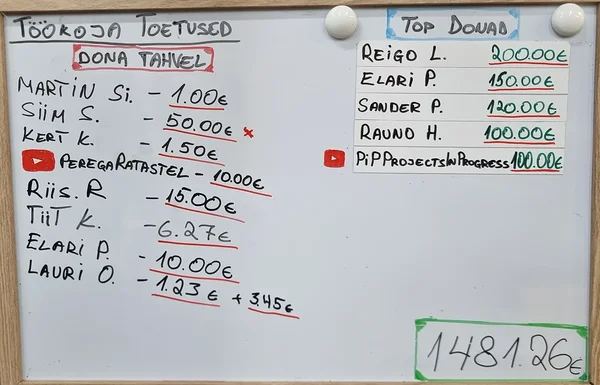 TÖÖKOJA TOETUSED
DONA TAHVEL
MARTIN Si. - 1.00€
SIIM S. - 50.00€ x
KERT K. - 1.50€
PEREGARATASTEL - 10.00€
RIIS. R - 15.00€
TIIT K. - 6.27€
ELARI P. - 10.00€
LAURI O. - 1.23€ + 3.45€
TOP DONAD
REIGO L. 200.00€
ELARI P. 150.00€
SANDER P. 120.00€
RAUNO H. 100.00€
PiPPROJECTSINPROGRESS 100.00€
1481.26€